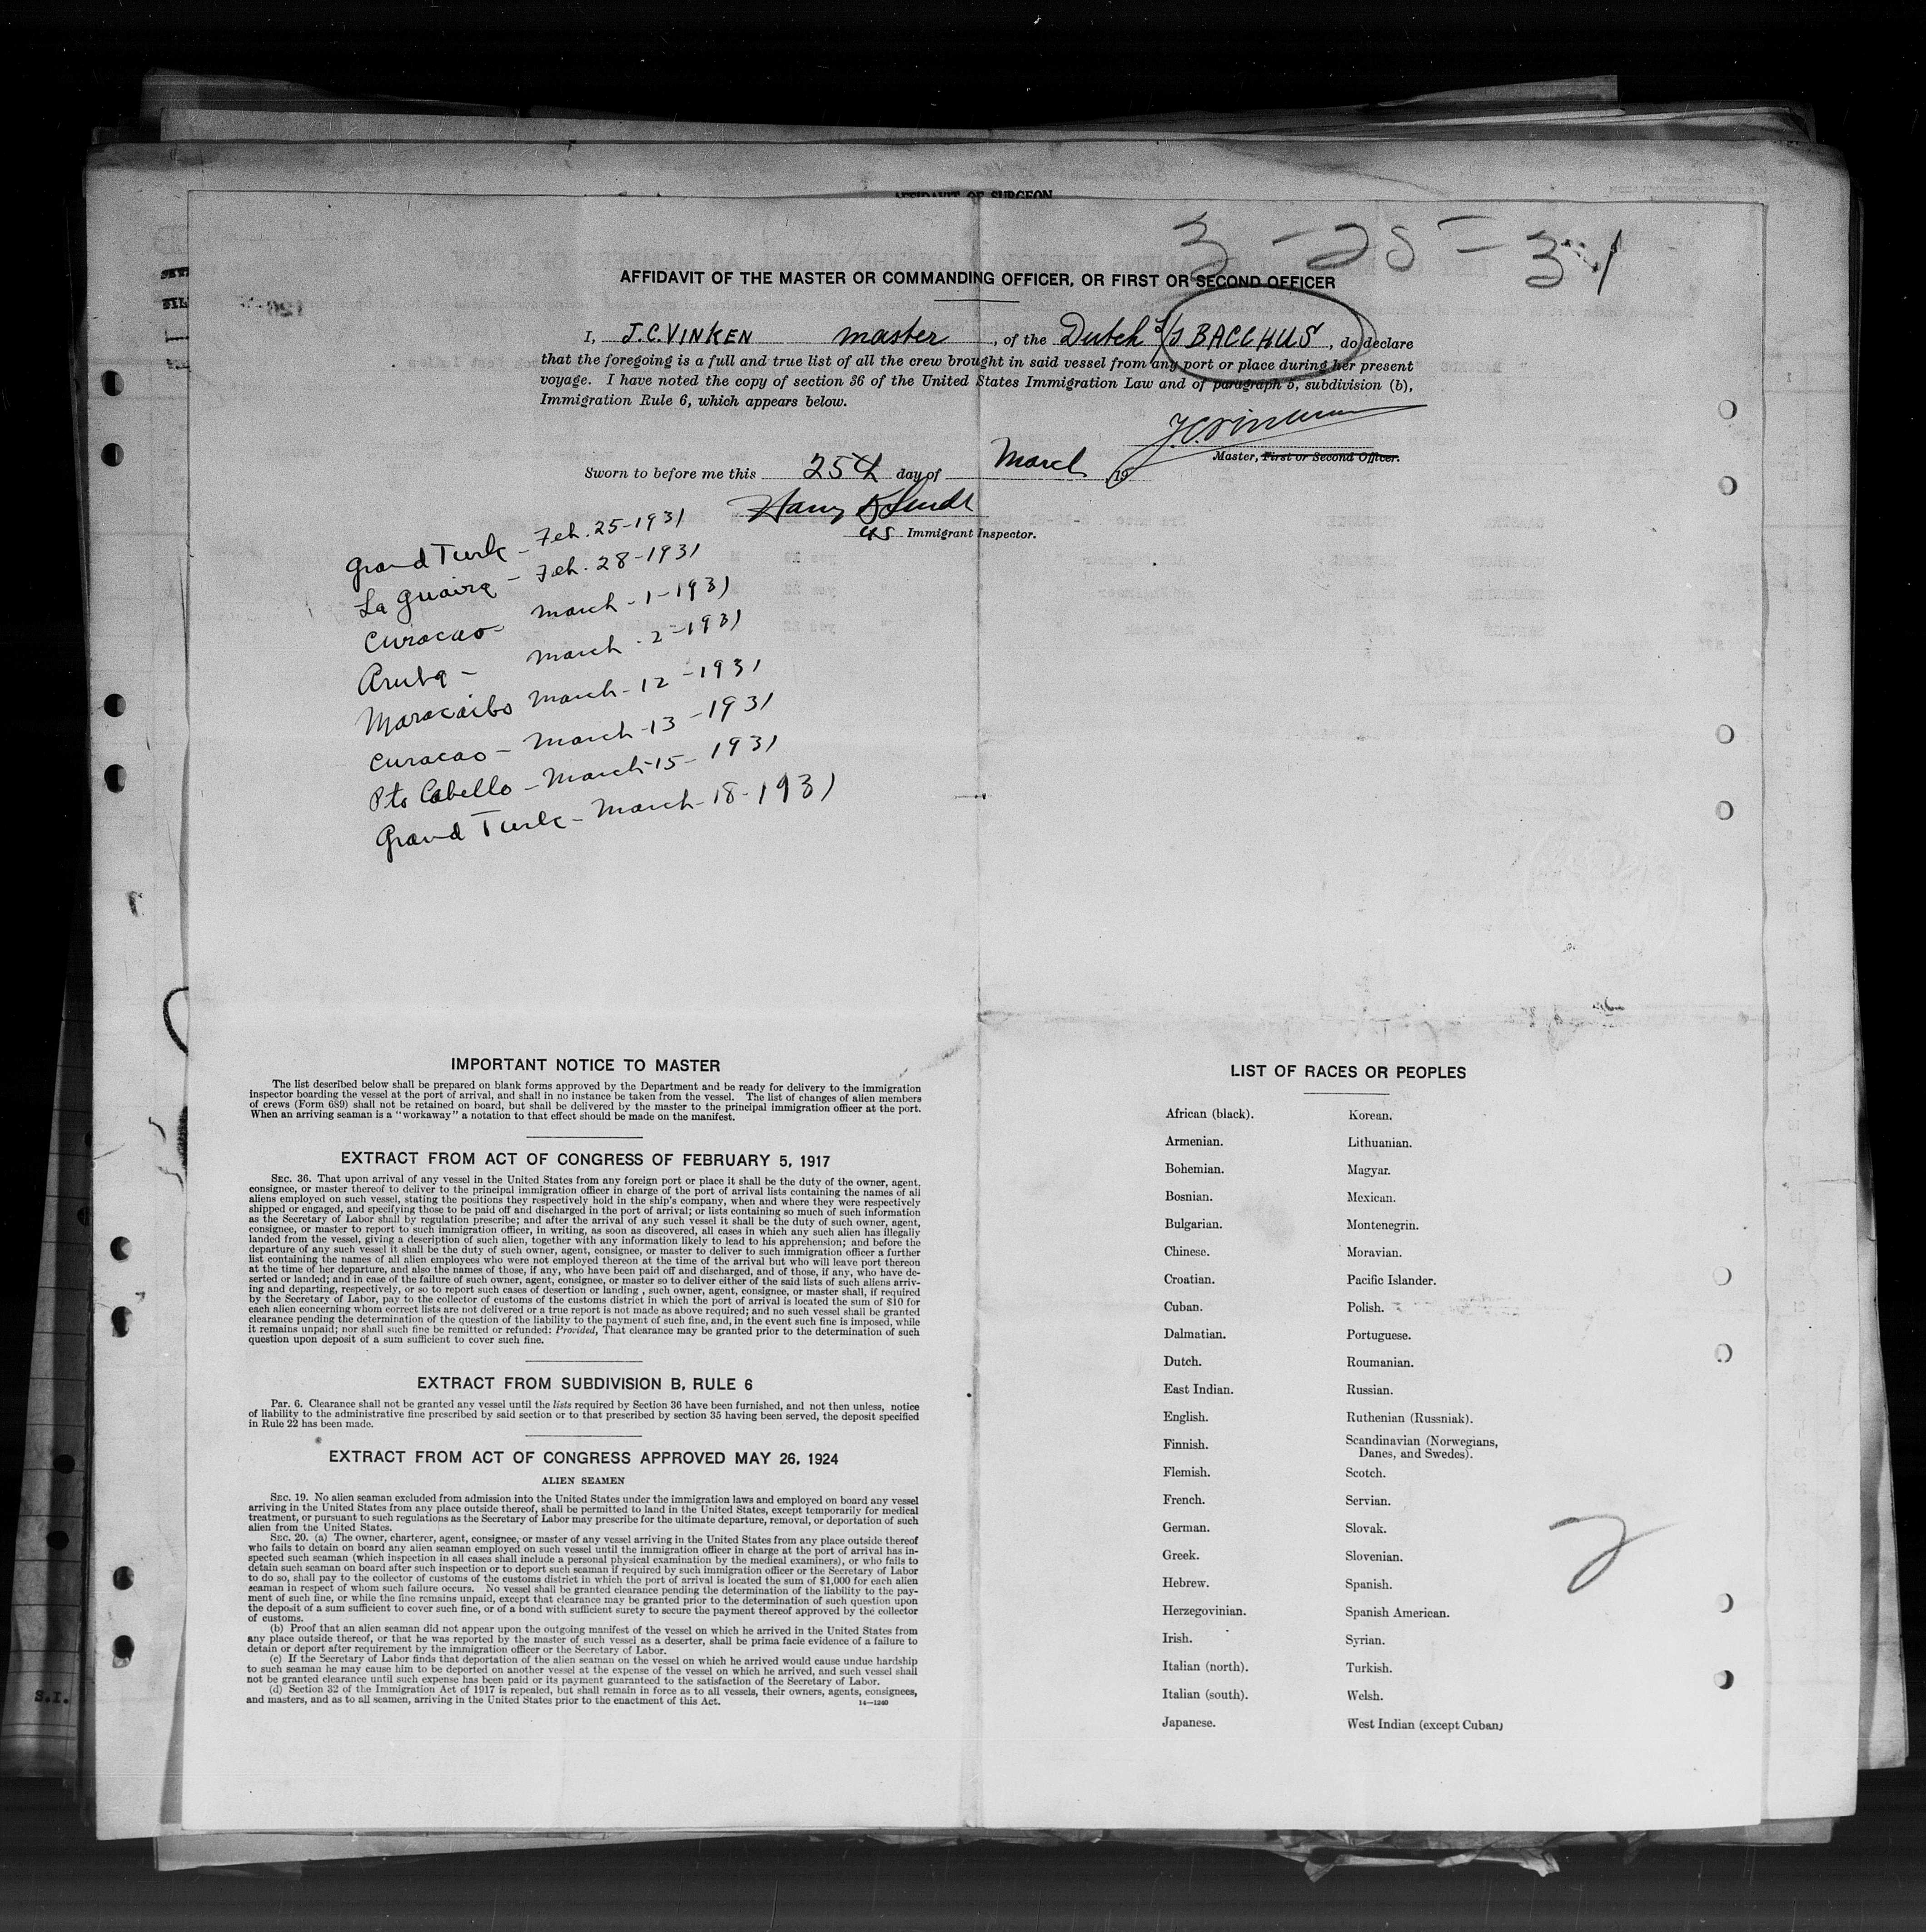 AFFIDAVIT OF SURGEON
3-25-31
AFFIDAVIT OF THE MASTER OR COMMANDING OFFICER, OR FIRST OR SECOND OFFICER
I, J.C. VINKEN master, of the Dutch S/S BACCHUS, do declare
that the foregoing is a full and true list of all the crew brought in said vessel from any port or place during her present
voyage. I have noted the copy of section 36 of the United States Immigration Law and of paragraph 5, subdivision (b),
Immigration Rule 6, which appears below.
Master, First or Second Officer.
Sworn to before me this 25th day of March, 19
Harry
US Immigrant Inspector.
Grand Turk - Feb. 25-1931
La Guaira - Feb. 28-1931
Curacao - March-1-1931
Aruba - March-2-1931
Maracaibo March-12-1931
Curacao - March-13-1931
Pto Cabello - March-15-1931
Grand Turk - March-18-1931
IMPORTANT NOTICE TO MASTER
The list described below shall be prepared on blank forms approved by the Department and be ready for delivery to the immigration
inspector boarding the vessel at the port of arrival, and shall in no instance be taken from the vessel. The list of changes of alien members
of crews (Form 689) shall not be retained on board, but shall be delivered by the master to the principal immigration officer at the port.
When an arriving seaman is a "workaway" a notation to that effect should be made on the manifest.
EXTRACT FROM ACT OF CONGRESS OF FEBRUARY 5, 1917
SEC. 36. That upon arrival of any vessel in the United States from any foreign port or place it shall be the duty of the owner, agent,
consignee, or master thereof to deliver to the principal immigration officer in charge of the port of arrival lists containing the names of all
aliens employed on such vessel, stating the positions they respectively hold in the ship's company, when and where they were respectively
shipped or engaged, and specifying those to be paid off and discharged in the port of arrival; or lists containing so much of such information
as the Secretary of Labor shall by regulation prescribe; and after the arrival of any such vessel it shall be the duty of such owner, agent,
consignee, or master to report to such immigration officer, in writing, as soon as discovered, all cases in which any such alien has illegally
landed from the vessel, giving a description of such alien, together with any information likely to lead to his apprehension; and before the
departure of any such vessel it shall be the duty of such owner, agent, consignee, or master to deliver to such immigration officer a further
list containing the names of all alien employees who were not employed thereon at the time of the arrival but who will leave port thereon
at the time of her departure, and also the names of those, if any, who have been paid off and discharged, and of those, if any, who have de-
serted or landed; and in case of the failure of such owner, agent, consignee, or master so to deliver either of the said lists of such aliens arriv-
ing and departing, respectively, or so to report such cases of desertion or landing, such owner, agent, consignee, or master shall, if required
by the Secretary of Labor, pay to the collector of customs of the customs district in which the port of arrival is located the sum of $10 for
each alien concerning whom correct lists are not delivered or a true report is not made as above required; and no such vessel shall be granted
clearance pending the determination of the question of the liability to the payment of such fine, and, in the event such fine is imposed, while
it remains unpaid; nor shall such fine be remitted or refunded: Provided, That clearance may be granted prior to the determination of such
question upon deposit of a sum sufficient to cover such fine.
EXTRACT FROM SUBDIVISION B, RULE 6
Par. 6. Clearance shall not be granted any vessel until the lists required by Section 36 have been furnished, and not then unless, notice
of liability to the administrative fine prescribed by said section or to that prescribed by section 35 having been served, the deposit specified
in Rule 22 has been made.
EXTRACT FROM ACT OF CONGRESS APPROVED MAY 26, 1924
ALIEN SEAMEN
SEC. 19. No alien seaman excluded from admission into the United States under the immigration laws and employed on board any vessel
arriving in the United States from any place outside thereof, shall be permitted to land in the United States, except temporarily for medical
treatment, or pursuant to such regulations as the Secretary of Labor may prescribe for the ultimate departure, removal, or deportation of such
alien from the United States.
SEC. 20. (a) The owner, charterer, agent, consignee, or master of any vessel arriving in the United States from any place outside thereof
who fails to detain on board any alien seaman employed on such vessel until the immigration officer in charge at the port of arrival has in-
spected such seaman (which inspection in all cases shall include a personal physical examination by the medical examiners), or who fails to
detain such seaman on board after such inspection or to deport such seaman if required by such immigration officer or the Secretary of Labor
to do so, shall pay to the collector of customs of the customs district in which the port of arrival is located the sum of $1,000 for each alien
seaman in respect of whom such failure occurs. No vessel shall be granted clearance pending the determination of the liability to the pay-
ment of such fine, or while the fine remains unpaid, except that clearance may be granted prior to the determination of such question upon
the deposit of a sum sufficient to cover such fine, or of a bond with sufficient surety to secure the payment thereof approved by the collector
of customs.
(b) Proof that an alien seaman did not appear upon the outgoing manifest of the vessel on which he arrived in the United States from
any place outside thereof, or that he was reported by the master of such vessel as a deserter, shall be prima facie evidence of a failure to
detain or deport after requirement by the immigration officer or the Secretary of Labor.
(c) If the Secretary of Labor finds that deportation of the alien seaman on the vessel on which he arrived would cause undue hardship
to such seaman he may cause him to be deported on another vessel at the expense of the vessel on which he arrived, and such vessel shall
not be granted clearance until such expense has been paid or its payment guaranteed to the satisfaction of the Secretary of Labor.
(d) Section 32 of the Immigration Act of 1917 is repealed, but shall remain in force as to all vessels, their owners, agents, consignees,
and masters, and as to all seamen, arriving in the United States prior to the enactment of this Act.
14—1240
LIST OF RACES OR PEOPLES
African (black).
Armenian.
Bohemian.
Bosnian.
Bulgarian.
Chinese.
Croatian.
Cuban.
Dalmatian.
Dutch.
East Indian.
English.
Finnish.
Flemish.
French.
German.
Greek.
Hebrew.
Herzegovinian.
Irish.
Italian (north).
Italian (south).
Japanese.
Korean.
Lithuanian.
Magyar.
Mexican.
Montenegrin.
Moravian.
Pacific Islander.
Polish.
Portuguese.
Roumanian.
Russian.
Ruthenian (Russniak).
Scandinavian (Norwegians,
Danes, and Swedes).
Scotch.
Servian.
Slovak.
Slovenian.
Spanish.
Spanish American.
Syrian.
Turkish.
Welsh.
West Indian (except Cuban)
2
S.I.